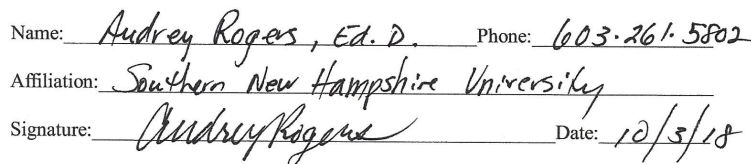 Name: Audrey Rogers, Ed. D. Phone: 603.261.5802
Affiliation: Southern New Hampshire University
Signature: Audrey Rogers Date: 10/3/18